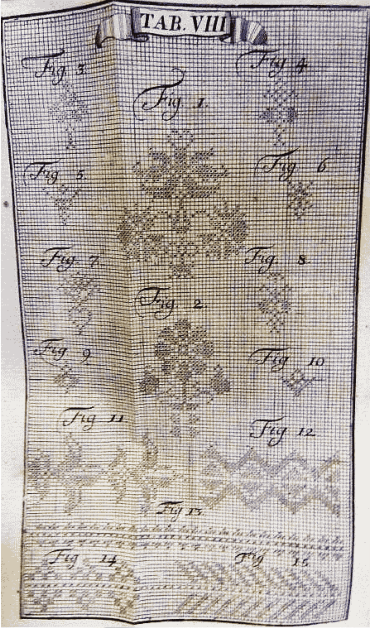 TAB. VIII
Fig. 3.
Fig. 4
Fig. 1.
Fig. 5.
Fig. 6
Fig. 7
Fig. 8
Fig. 2.
Fig. 9
Fig. 10
Fig. 11
Fig. 12
Fig 13
Fig. 14
Fig. 15